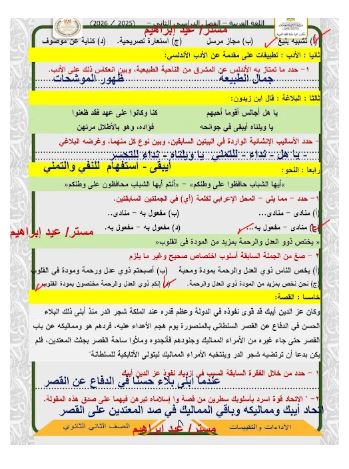 اللغة العربية – الفصل الدراسي الثاني – (2025 / 2026)
مستر/ عيد إبراهيم
(أ) تشبيه بليغ (ب) مجاز مرسل (ج) استعارة تصريحية. (د) كناية عن موصوف
ثانيا : الأدب : تطبيقات على مقدمة عن الأدب الأندلسي:
١- حدد ما تمتاز به الأندلس عن المشرق من الناحية الطبيعية، وبين انعكس ذلك على الأدب.
جمال الطبيعة ظهور الموشحات
ثالثا : البلاغة : قال ابن زيدون:
يا هل أجالس أقوما أحبهم كنا وكانوا على عهد فقد ظعنوا
يا ويلتاه أيبقى في جوانحه فؤاده، وهو بالأطلال مرتهن
- حدد الأساليب الإنشائية الواردة في البيتين السابقين، وبين نوع كل منهما، وغرضه البلاغي
- يا هل - نداء - للتمني يا ويلتاه - نداء للتحسر
أيبقى - استفهام للنفي والتمني
رابعا : النحو:
«أيها الشباب حافظوا على وطنكم» – «أنتم أيها الشباب محافظون على وطنكم»
١- حدد – مما يلي – المحل الإعرابي لكلمة (أي) في الجملتين السابقتين.
(أ) منادى – منادى. (ب) مفعول به – منادى..
(ج) منادى – مفعول به. (د) مفعول به – مفعول به.
مستر/ عيد ابراهيم
« يختص ذوو العدل والرحمة بمزيد من المودة في القلوب»
٢ – صغ من الجملة السابقة أسلوب اختصاص صحيح وغير ما يلزم
(أ) يختص الناس ذوي العدل والرحمة بمودة ومحبة (ب) أصبحتم ذوي عدل ورحمة ومودة في القلوب
(ج) نحن نختص بمزيد من المودة ذوي العدل والرحمة. (د) إنكم ذوي العدل والرحمة مختصون بمودة القلوب
خامسا : القصة:
وكان عز الدين أيبك قد قوى نفوذه في الدولة وعظم قدره عند الملكة شجر الدر منذ أبلى ذلك البلاء
الحسن في الدفاع عن القصر السلطاني بالمنصورة يوم هجم الأعداء عليه، فردهم هو ومماليكه عن باب
القصر حتى جاء غيره من الأمراء المماليك وجنودهم فأنجدوه وملأوا ساحة القصر بجثث المعتدين، فلم
يكن بدعا أن ترتضيه شجر الدر وينتخبه الأمراء المماليك ليتولى الأتابكية للسلطانة
١ – حدد من خلال الفقرة السابقة السبب في ازدياد نفوذ عز الدين أيبك
عندما أبلى بلاء حسنا في الدفاع عن القصر
٢- "الاتحاد قوة اسرد بأسلوبك سطرين من قصة وا إسلاماه تبرهن فيهما على صدق هذه المقولة.
اتحاد أيبك ومماليكه وباقي المماليك في صد المعتدين على القصر
الأداءات والتقييمات مستر/ عيد ابراهيم الصف الثاني الثانوي